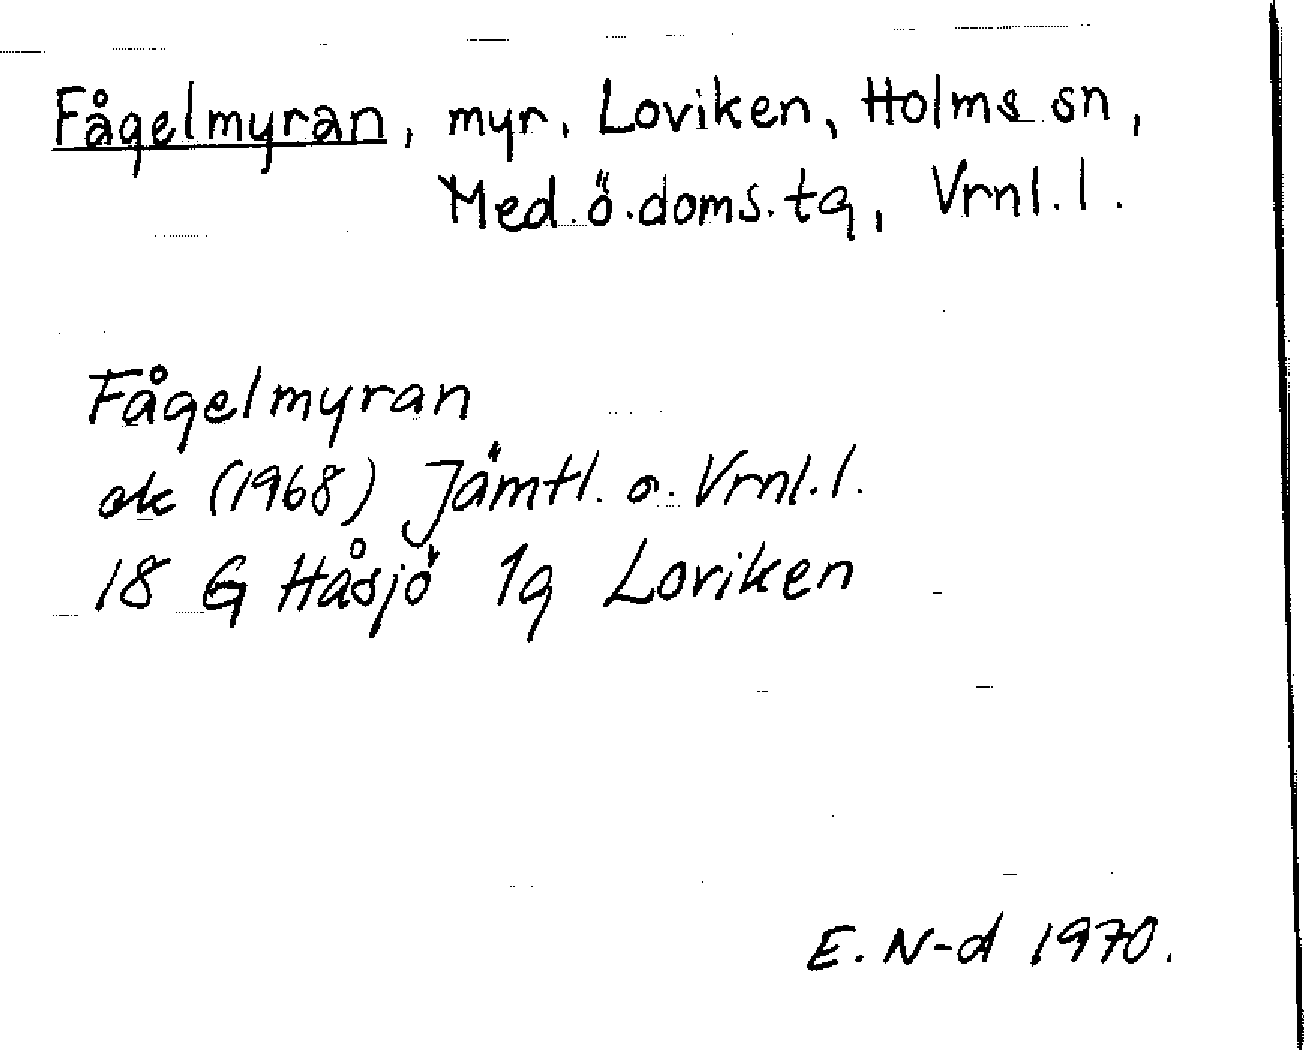 Fågelmyran, myr, Loviken, Holms sn,
Med.ö.doms.tg, Vrnl.l.
Fågelmyran
ek (1968) Jämtl. o. Vrnl.l.
18 G Håsjö 1g Loviken
E. N-d 1970.